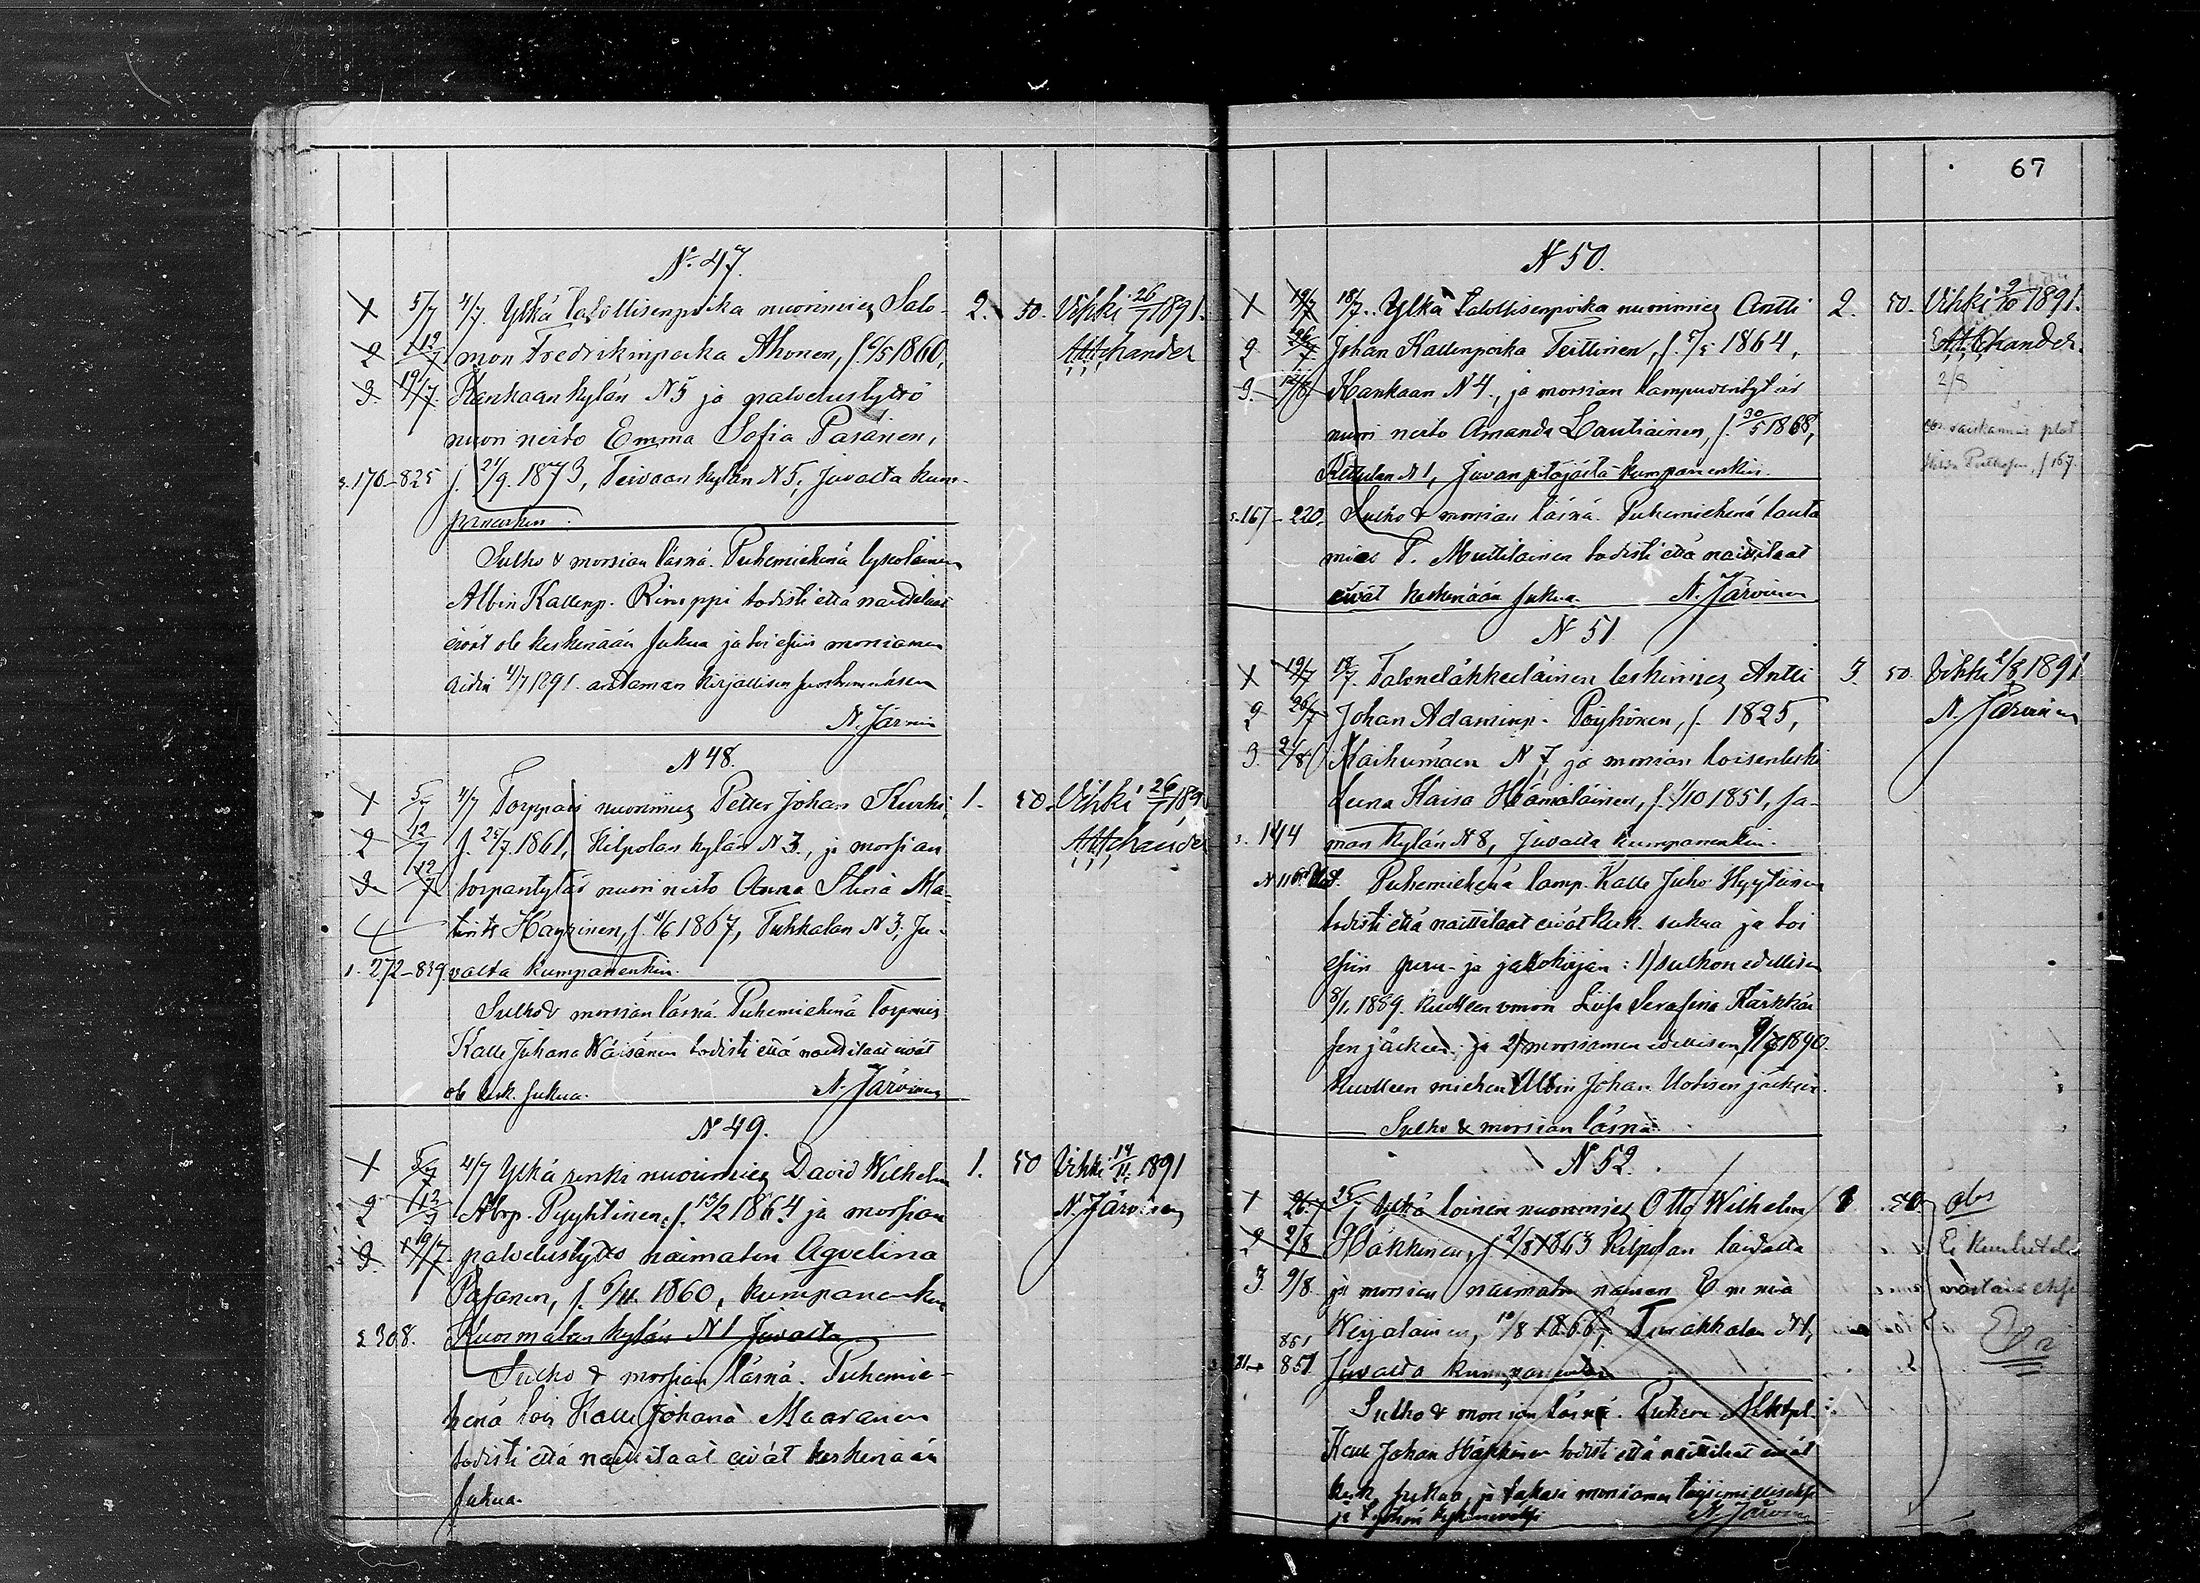 N:o 47.
X 5/7 4/7. Ylkä talollisenpoika nuorimies Salo- 2. 50. Vihki 26/7 1891.
2 12/7 mon Fredrikinpoika Ahonen, s. 6/5 1860,
3. 19/7. Kankaan kylän N 5 ja palvelustyttö
nuori neito Emma Sofia Pasanen,
s. 170-825 s. 21/9. 1873, Teivaan kylän N 5, Juvalta kum-
panenkin.
Sulho & morsian läsnä. Puhemiehenä
Albin Kallenp. Rimppi todisti että naittilaat
eivät ole keskenään sukua ja toi esiin morsiamen
äidin 4/7 1891. antaman kirjallisen suostumuksen
N. Järvinen
N 48.
X 5/7 4/7 Torppari nuorimies Petter Johan Kurki, 1. 50. Vihki 26/7 189
2 12/7 s. 25/7. 1861, Kilpolan kylän N 3., ja morsian
3. 12/7 torpantytär nuori neito Anna Stina Ma-
Häyrinen, s. 11/6 1867, Tukkalan N 3, Ju-
s. 272-839. valta kumpanenkin.
Sulho & morsian läsnä. Puhemiehenä torpparis
Kalle Juhana Väisänen todisti että naittilaat eivät
ole kesk. sukua. N. Järvinen
N 49.
X 5/7 4/7 Ylkä renki nuorimies David Wilhelm 1. 50 Vihki 14/11. 1891
2 12/7 Abrp. Pyyhtinen, s. 13/2 1864 ja morsian N. Järvinen
3. 19/7. palvelustyttö naimaton Agvelina
Pasanen, s. 6/11. 1860, kumpanenkin
s 308. Kuosmalan kylän N 1 Juvalta
Sulho & morsian läsnä. Puhemie-
henä lois Kalle Johana Maaranen
todisti että naittilaat eivät keskenään
sukua.
67
N 50.
X 19/7 18/7. Ylkä talollisenpoika nuorimies Antti 2. 50. Vihki 2/10 1891.
2 26/7 Johan Kallenpoika Teittinen, s. 5/5 1864,
3. Kankaan N 4., ja morsian lampuodintytär 2/8
nuori neito Amanda Lautiainen, s. 30/5 1868,
Kettulan N 1, Juvan pitäjästä kumpanenkin.
s. 167-220. Sulho & morsian läsnä. Puhemiehenä lauta
mies P. Muttilainen todisti että naittilaat
eivät keskenään sukua. N. Järvinen
N 51
X 19/7 18/7. Talonelåkkeläinen leskimies Antti 3. 50. Vihki 2/8 1891
2 26/7 Johan Adaminp. Pöyhönen, s. 1825, N. Järvinen
3. 2/8. Kaihumäen N 7, ja morsian loisenleski
Leena Kaisa Hämäläinen, s. 4/10 1851, sa-
s. 144 man kylän N 8, Juvalta kumpanenkin.
Puhemiehenä lamp. Kalle Juho Hyytiäinen
todisti että naittilaat eivät kesk. sukua ja toi
esiin peru- ja jakokirjan: 1) sulhon edellisen
8/1. 1889. kuolleen vaimon Liisa Serafina Kärkkäi
sen jälkeen; ja 2) morsiamen edellisen 1890.
kuolleen miehen Albin Johan Uotisen jälkeen.
Sulho & morsian läsnä.
N 52.
1 26/7 25/7. Ylkä loinen nuorimies Otto Wilhelm 1 50. obs
2 2/8 Häkkinen, s. 2/8 1863 Kilpolan laidalta Ei kuuluteta
3. 9/8. ja morsian naimaton nainen Emma
Weijalainen, 10/8 1866, N 1,
851 Juvalta kumpanenkin
Sulho & morsian läsnä.
Kalle Johan Häkkinen todisti että naittilaat eivät
kesk. sukua, ja takasi morsiamen täysimielliseksi
N. Järvinen